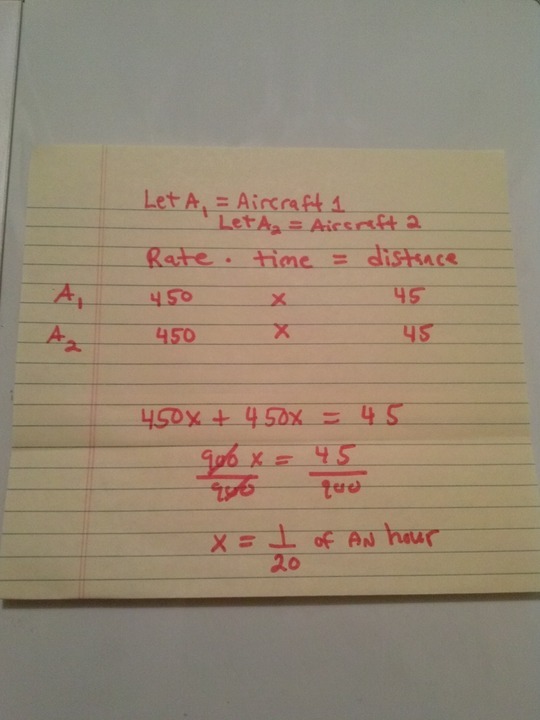 Let A₁ = Aircraft 1
Let A₂ = Aircraft 2
Rate · time = distance
A₁ 450 x 45
A₂ 450 x 45
450x + 450x = 45
900 x = 45
900 900
x = 1 of AN hour
20